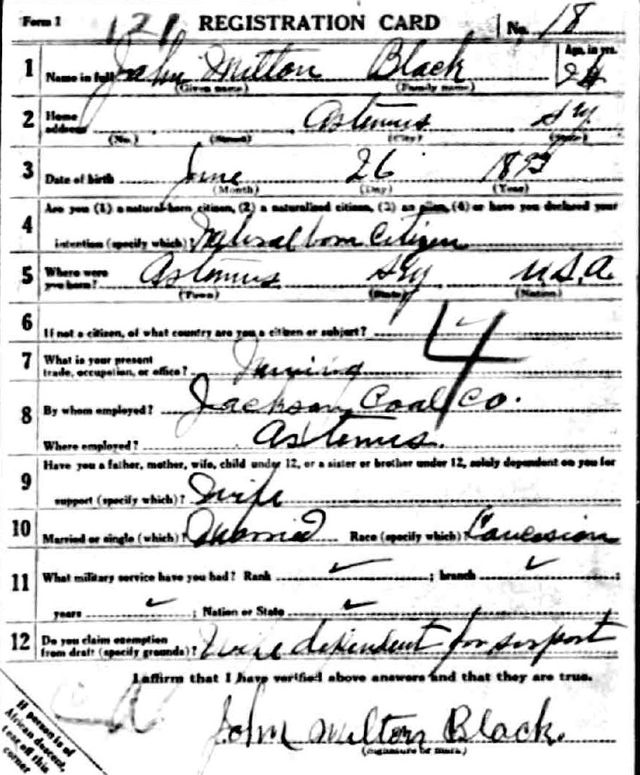 Form 1 121 REGISTRATION CARD No. 18
1 Name in full John Milton Black Age, in yrs.
(Given name) (Family name) 24
2 Home address Artemus Ky
(No.) (Street) (City) (State)
3 Date of birth June 26 1893
(Month) (Day) (Year)
4 Are you (1) a natural-born citizen, (2) a naturalized citizen, (3) an alien, (4) or have you declared your
intention (specify which)? Natural born Citizen
5 Where were you born? Artemus Ky U.S.A.
(Town) (State) (Nation)
6 If not a citizen, of what country are you a citizen or subject?
4
7 What is your present trade, occupation, or office? Mining
8 By whom employed? Jackson Coal Co.
Where employed? Artemus.
9 Have you a father, mother, wife, child under 12, or a sister or brother under 12, solely dependent on you for
support (specify which)? Wife
10 Married or single (which)? Married Race (specify which)? Caucasion
11 What military service have you had? Rank ✓ ; branch ✓ ;
years ✓ ; Nation or State ✓
12 Do you claim exemption from draft (specify grounds)? Wife dependent for support
I affirm that I have verified above answers and that they are true.
John Milton Black.
(Signature or mark)
If person is of
African descent,
tear off this
corner